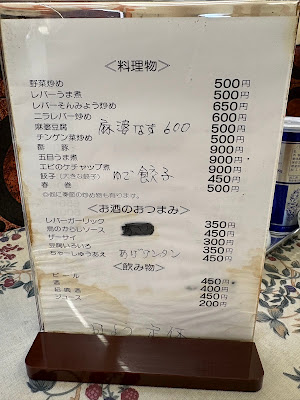 ＜料理物＞
野菜炒め 500円
レバーうま煮 500円
レバーそんみょう炒め 650円
ニラレバー炒め 600円
麻婆豆腐 麻婆なす600 500円
チンゲン菜炒め 500円
酢豚 900円
五目うま煮 900円
エビのケチャップ煮 900円
餃子（大きな餃子） 餃子 450円
春巻 500円
＜お酒のおつまみ＞
レバーガーリック 350円
鶏のからしソース 450円
ザーサイ 300円
豆腐いろいろ 350円
ちゃーしゅうあえ あげワンタン 450円
＜飲み物＞
ビール 450円
酒 400円
450円
ジュース 200円